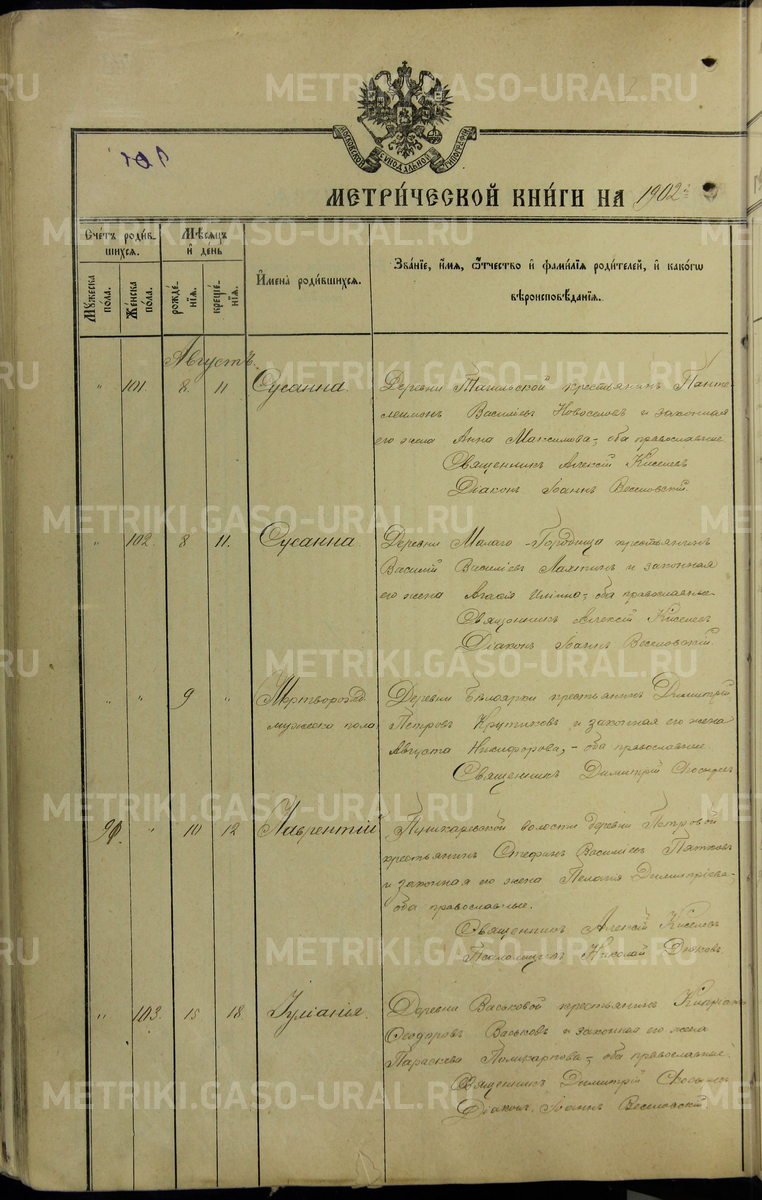 METRIKI.GASO-URAL.RU
101
МОСКОВСКОЙ СѴНОДАЛЬНОЙ ТИПОГРАФІИ
МЕТРИ́ЧЕСКОЙ КНИ́ГИ НА 1902
Сче́тъ роди́в-
шихся.
Мѣ́сяцъ
и҆ де́нь
Му́жеска
по́ла.
Же́нска
по́ла.
рожде́-
нїѧ.
креще́-
нїѧ.
И҆мена̀ роди́вшихся.
Зва́нїе, и҆́мѧ, ѻ҆́тчество и҆ фами́лїѧ роди́телей, и҆ како́гѡ
вѣроисповѣ́данїѧ.
Августъ.
" 101. 8. 11 Сусанна. Деревни крестьянинъ Панте-
леимонъ Василіевъ Новоселовъ и законная
его жена Анна Максимова, оба православные
Священникъ Алексій Киселевъ
Діаконъ Іоаннъ Веселовскій.
" 102. 8 11. Сусанна Деревни Малаго крестьянинъ
Василій Василіевъ Лахтинъ и законная
его жена Агафія Ильина, оба православные
Священникъ Алексій Киселевъ
Діаконъ Іоаннъ Веселовскій.
" " 9 " Мертворожд. Деревни Белоярки крестьянинъ Димитрій
мужеска пола Петровъ Крутиковъ и законная его жена
Августа Никифорова, - оба православные
Священникъ Димитрій
" 10 12 Лаврентій Пушкаревской волости деревни Петровой
крестьянинъ Стефанъ Василіевъ Пятковъ
и законная его жена Пелагія Димитріева
оба православные.
Священникъ Алексій Киселевъ
Псаломщикъ Николай Дьяковъ.
" 103. 15 18. Іуліанія. Деревни Васьковой крестьянинъ Кипріанъ
Ѳеодоровъ Васьковъ и законная его жена
Параскева Поликарпова, оба православные
Священникъ Димитрій
Діаконъ Іоаннъ Веселовскій